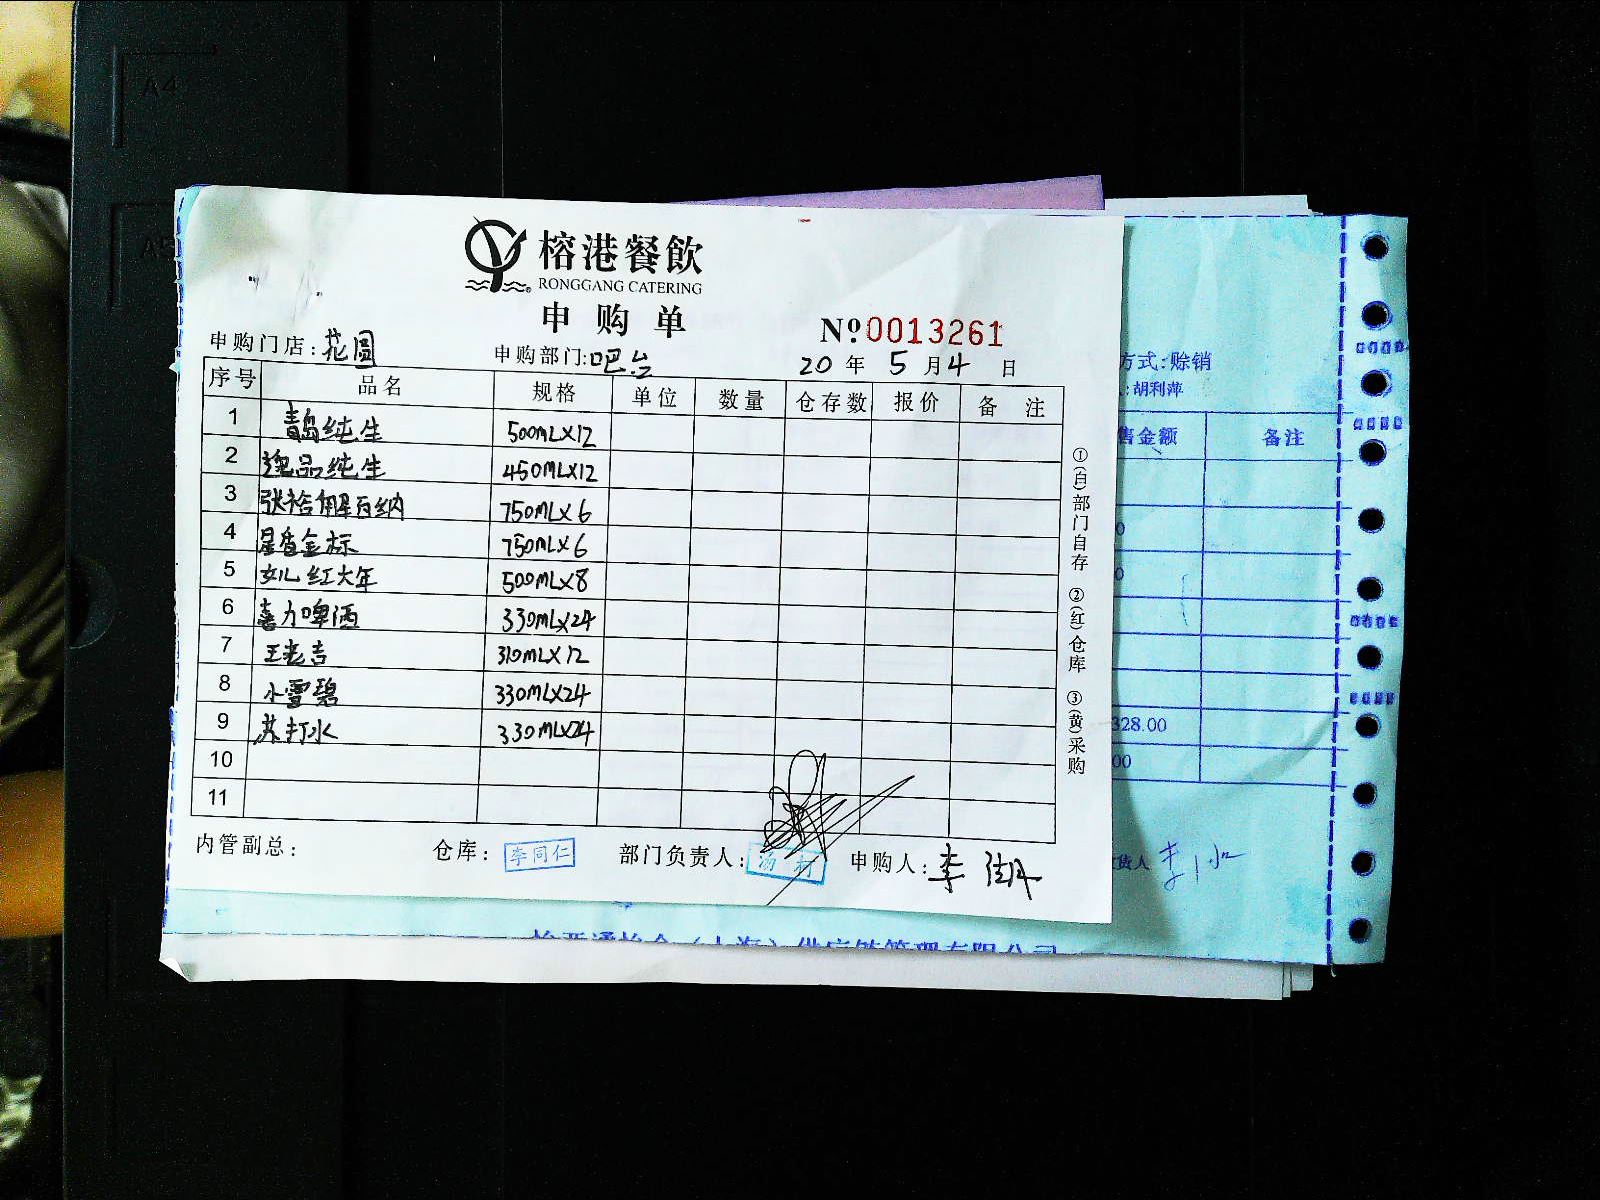 A4
A5
榕港餐飲
RONGGANG CATERING
申购单
№0013261
申购门店:花园 申购部门:吧台 20年5月4日
序号 品名 规格 单位 数量 仓存数 报价 备注
1 青岛纯生 500MLX12
2 逸品纯生 450MLX12
3 张裕解百纳 750MLX6
4 750MLX6
5 女儿红大年 500MLX8
6 喜力啤酒 330MLX24
7 王老吉 310MLX12
8 小雪碧 330MLX24
9 苏打水 330MLX24
10
11
内管副总: 仓库: 李同仁 部门负责人: 申购人:李
①(白)部门自存 ②(红)仓库 ③(黄)采购
方式:赊销
:胡利萍
售金额 备注
0
0
328.00
00
货人